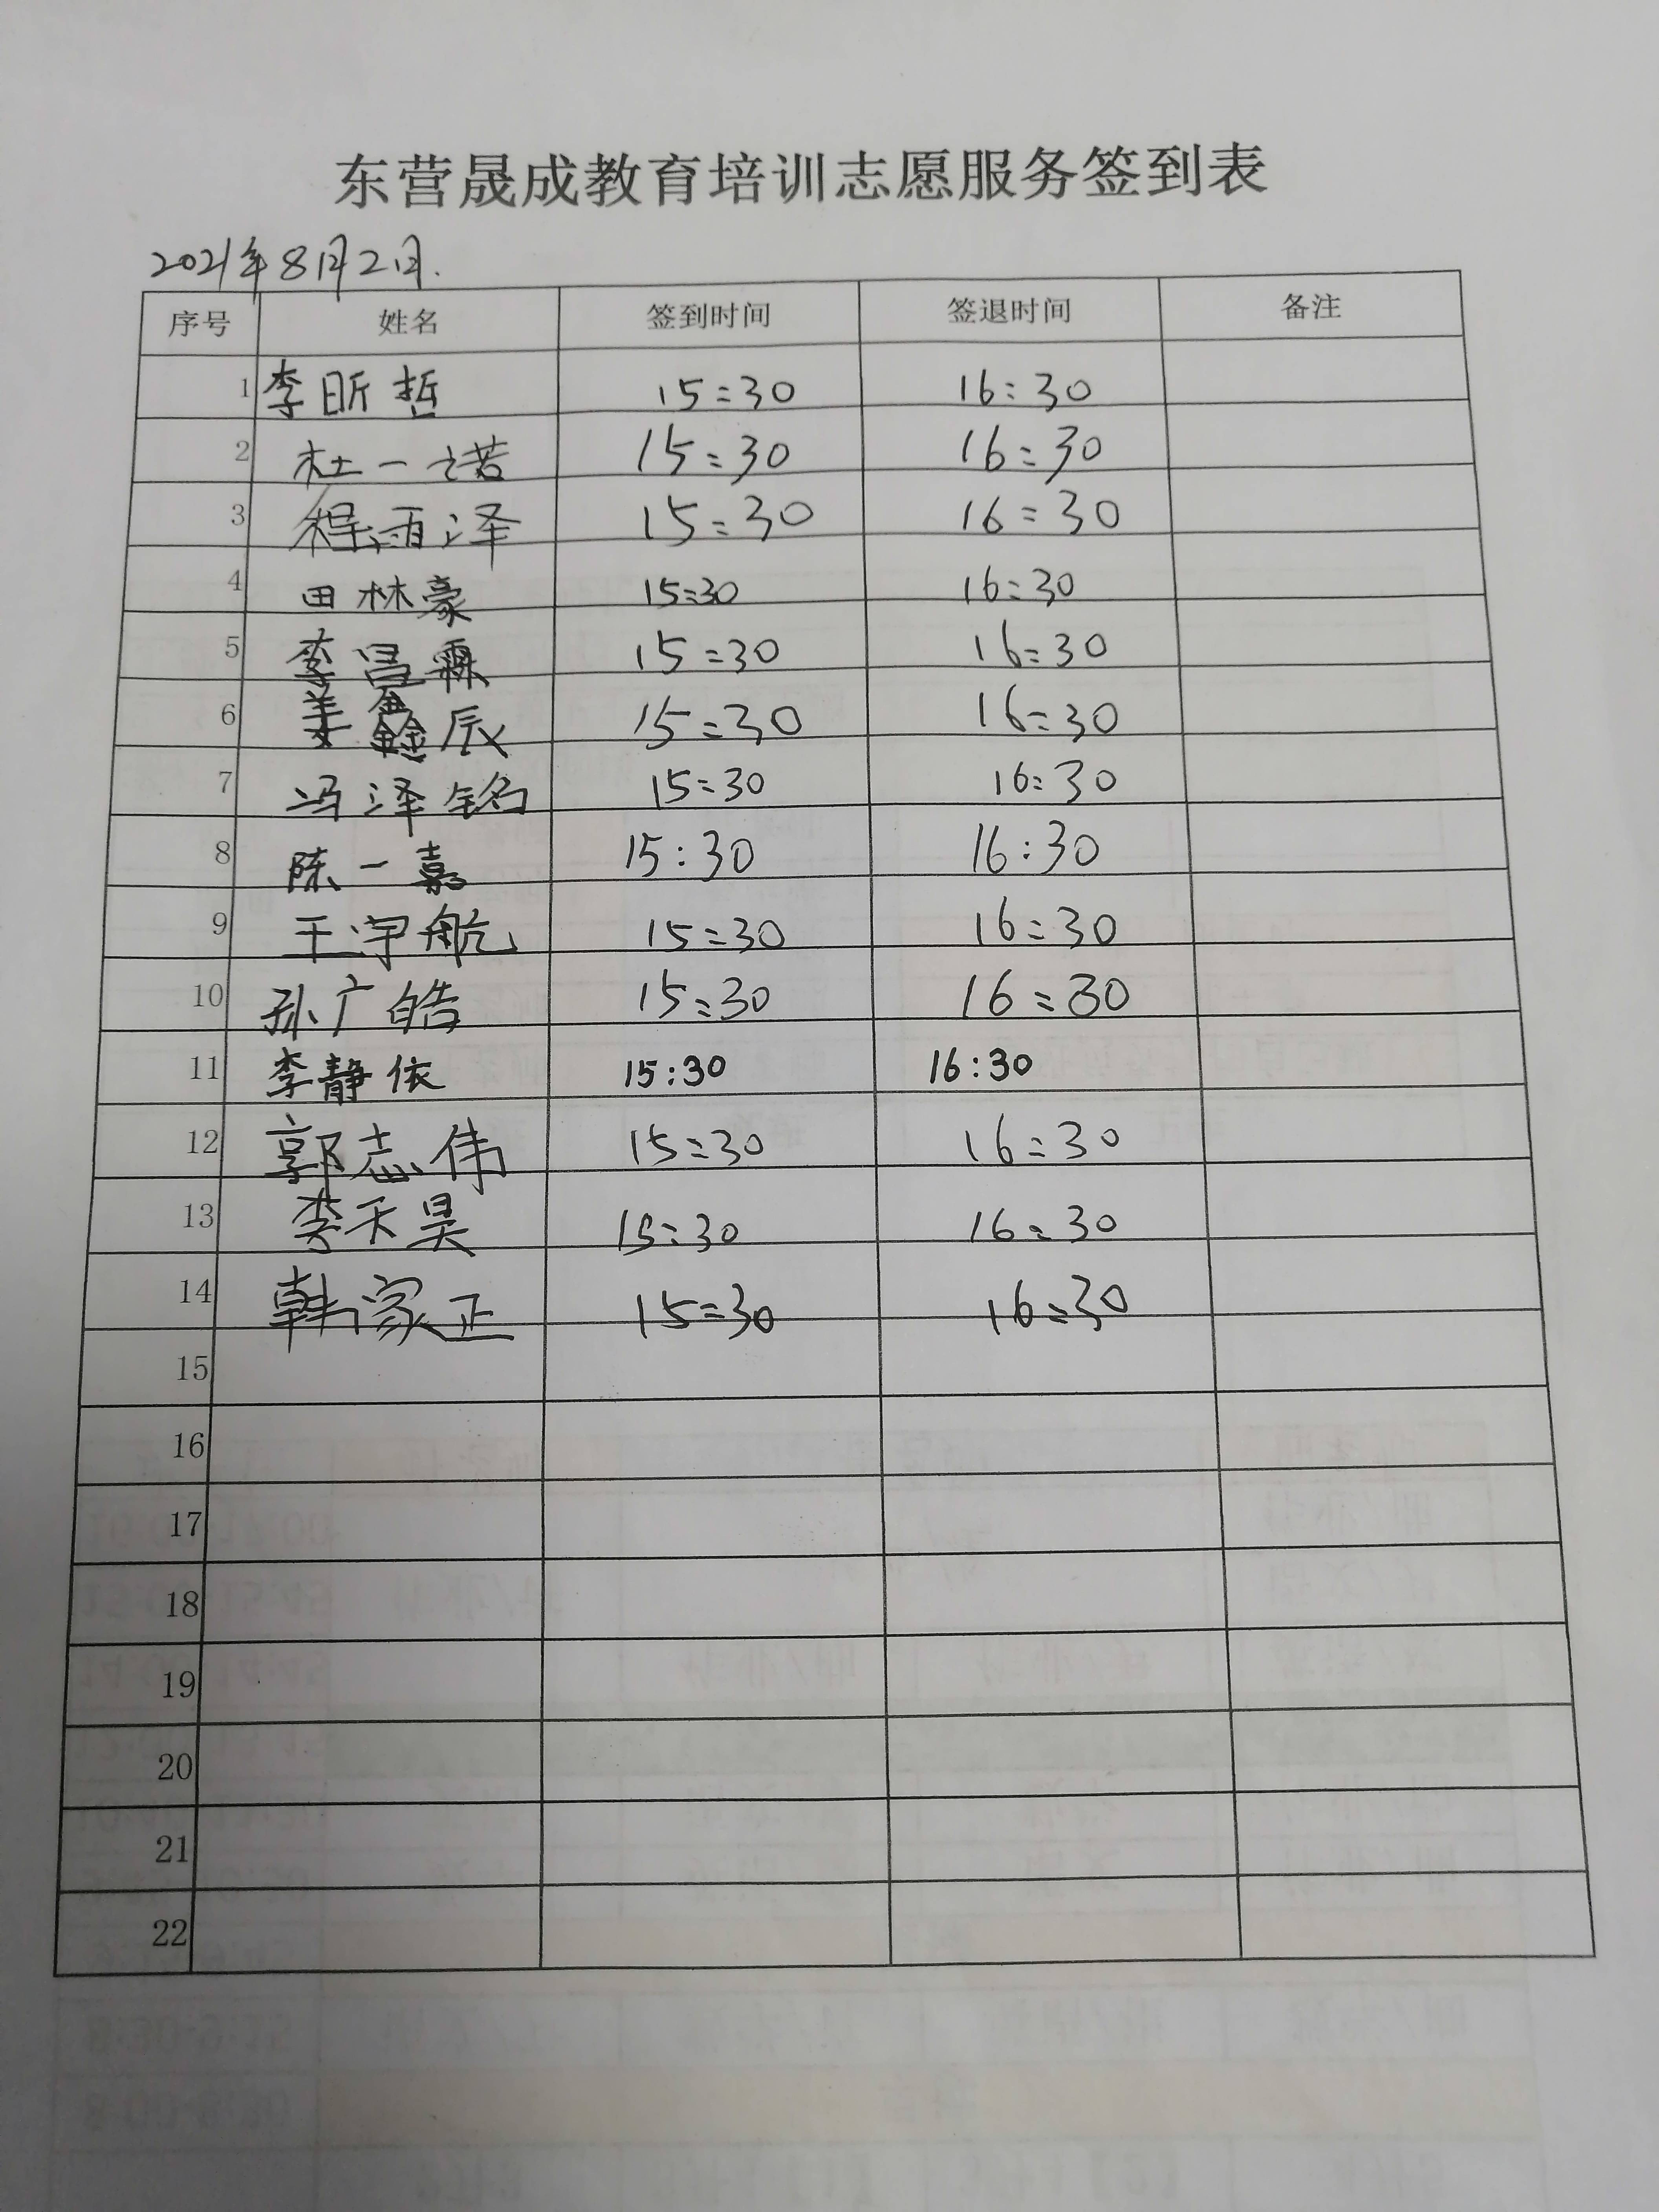 东营晟成教育培训志愿服务签到表
2021年8月2日.
序号 姓名 签到时间 签退时间 备注
1 李昕哲 15:30 16:30
2 杜一诺 15:30 16:30
3 程雨泽 15:30 16:30
4 田林豪 15:30 16:30
5 李昌霖 15:30 16:30
6 姜鑫辰 15:30 16:30
7 冯泽铭 15:30 16:30
8 陈一嘉 15:30 16:30
9 王宇航 15:30 16:30
10 孙广皓 15:30 16:30
11 李静依 15:30 16:30
12 郭志伟 15:30 16:30
13 李天昊 15:30 16:30
14 韩家正 15:30 16:30
15
16
17
18
19
20
21
22